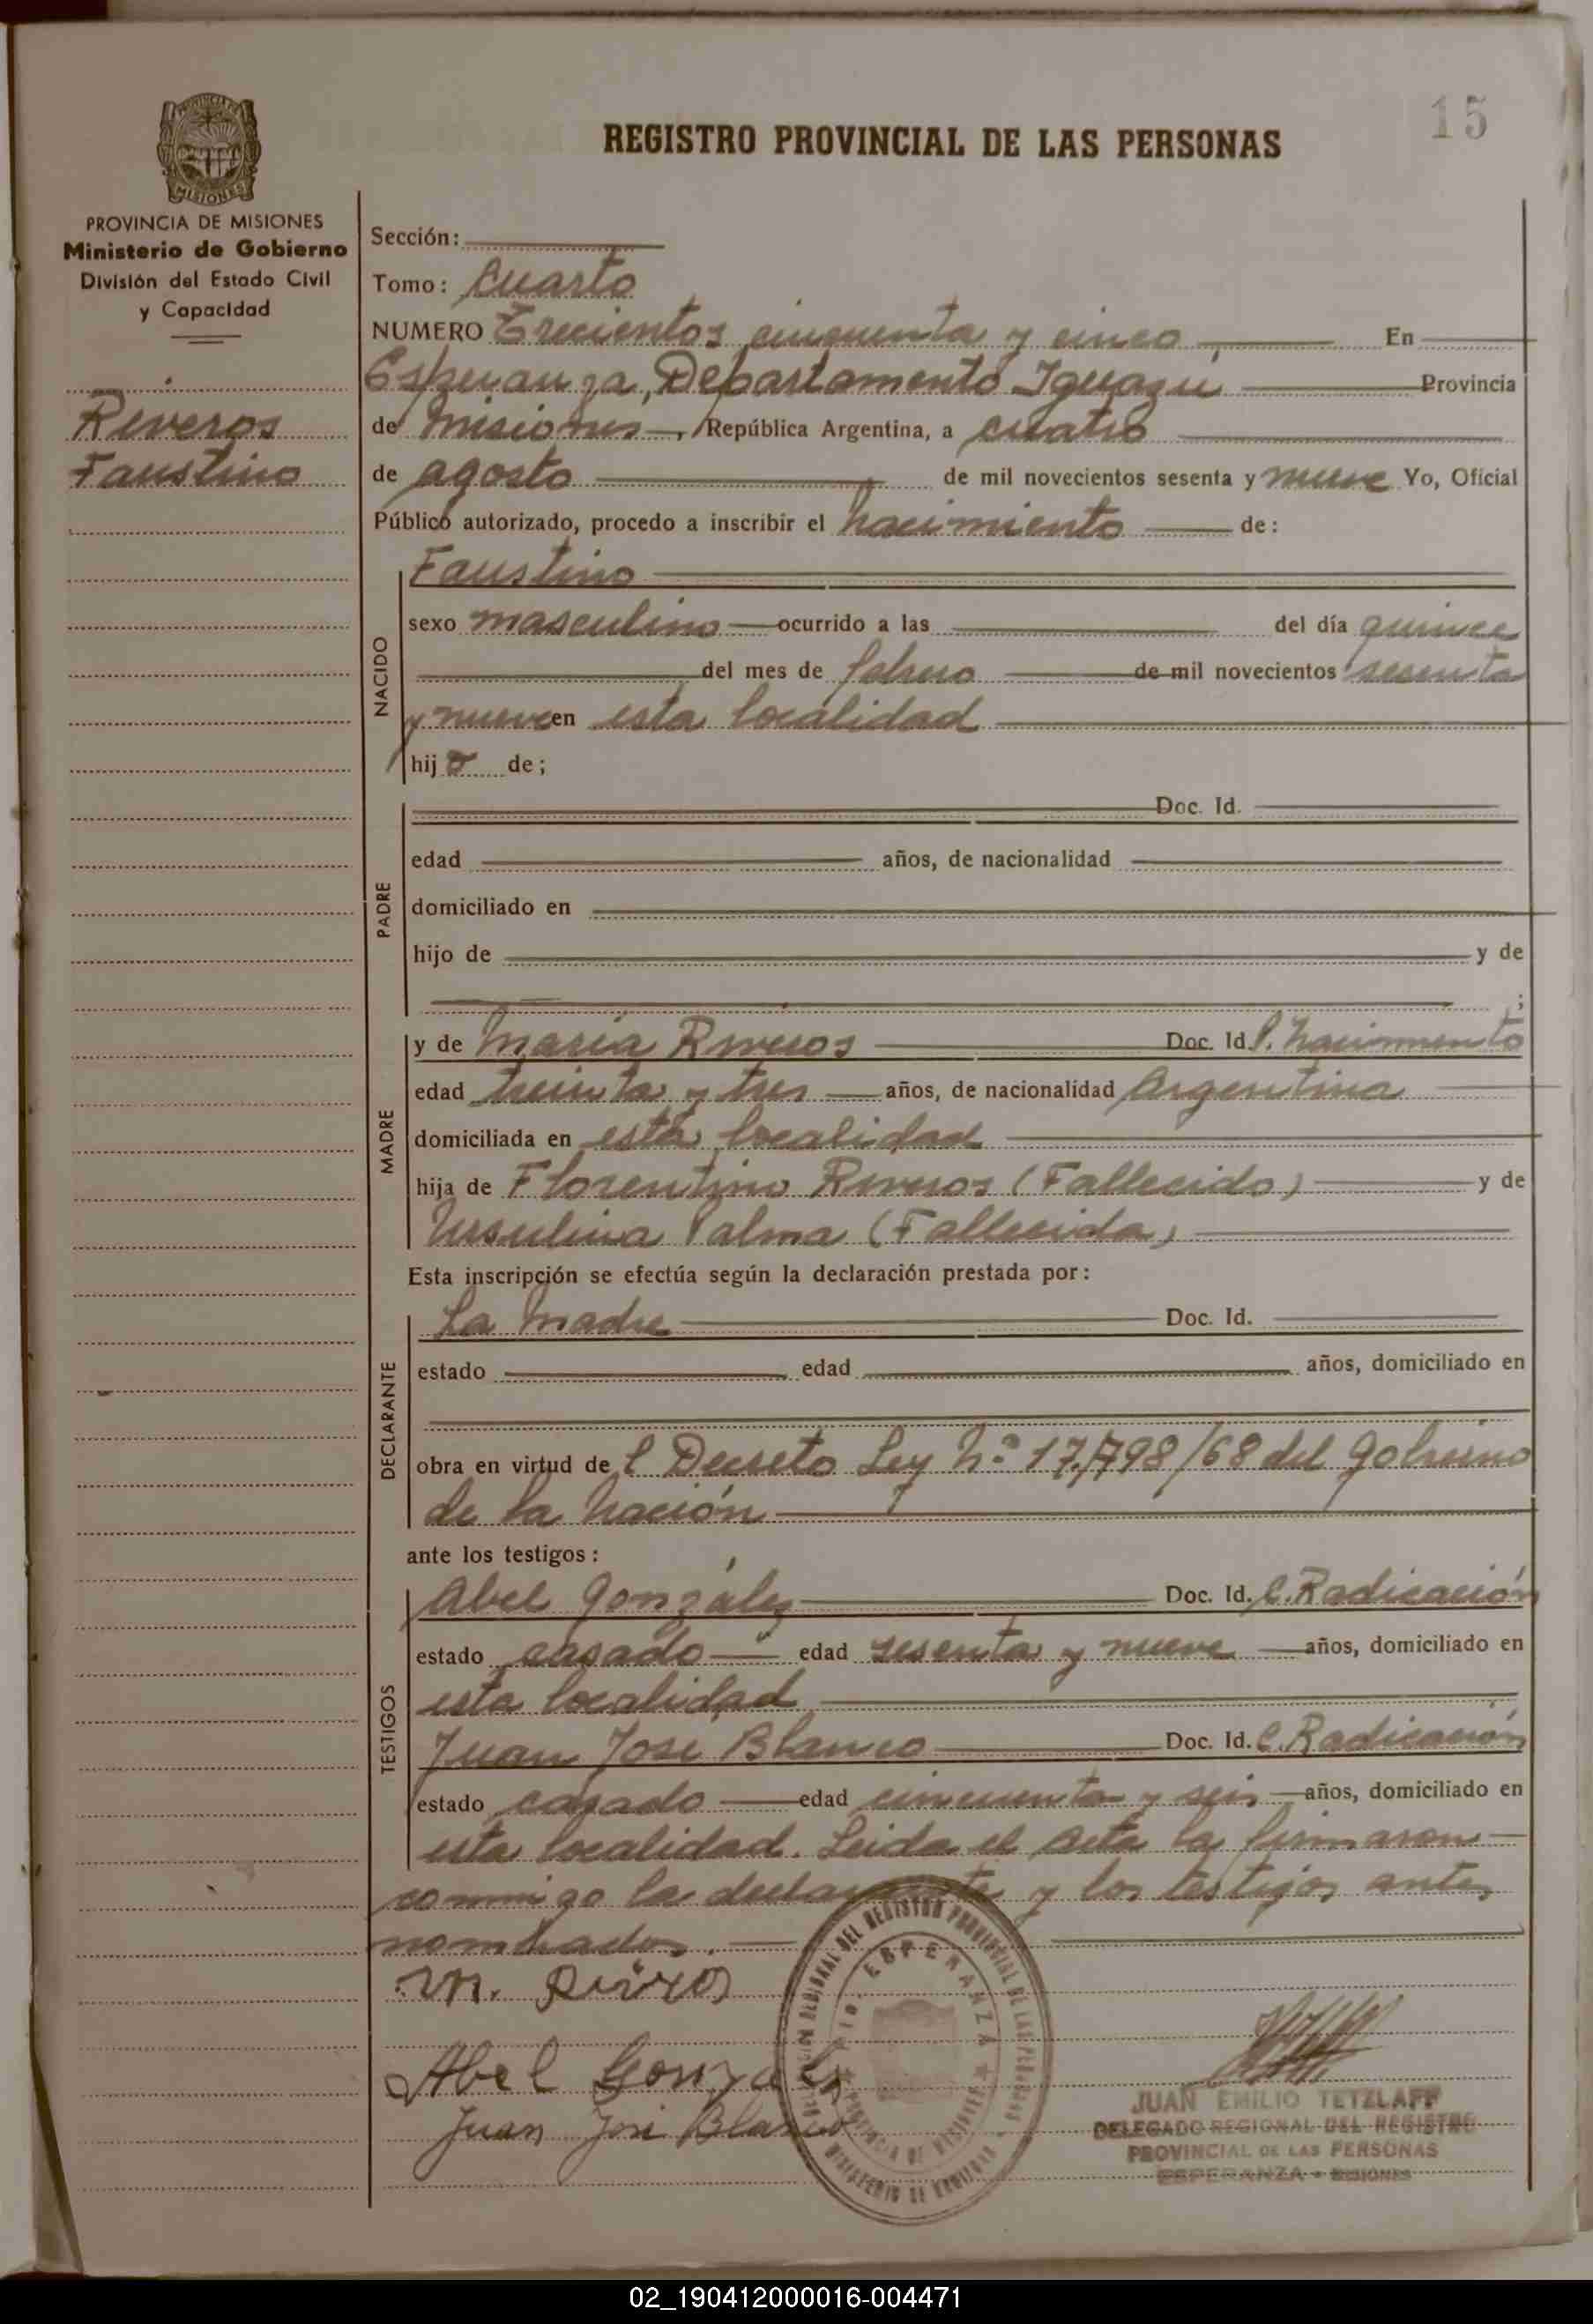 15
REGISTRO PROVINCIAL DE LAS PERSONAS
PROVINCIA DE MISIONES
MISIONES
PROVINCIA DE MISIONES
Ministerio de Gobierno
División del Estado Civil
y Capacidad
Riveros
Faustino
Sección:
Tomo: Cuarto
NUMERO Trecientos cincuenta y cinco En
Esperanza, Departamento Iguazú Provincia
de Misiones, República Argentina, a cuatro
de agosto de mil novecientos sesenta y nueve Yo, Oficial
Público autorizado, procedo a inscribir el nacimiento de:
NACIDO
Faustino
sexo masculino ocurrido a las del día quince
del mes de febrero de mil novecientos sesenta
y nueve en esta localidad
hijo de;
PADRE
Doc. Id.
edad años, de nacionalidad
domiciliado en
hijo de y de
;
MADRE
y de Maria Riveros Doc. Id. P. Nacimiento
edad treinta y tres años, de nacionalidad Argentina
domiciliada en esta localidad
hija de Florentino Riveros (Fallecido) y de
Ursulina Palma (Fallecida)
Esta inscripción se efectúa según la declaración prestada por:
DECLARANTE
La Madre Doc. Id.
estado edad años, domiciliado en
obra en virtud del Decreto Ley Nº 17.798/68 del Gobierno
de la Nación
ante los testigos:
TESTIGOS
Abel González Doc. Id. C. Radicación
estado casado edad sesenta y nueve años, domiciliado en
esta localidad
Juan Jose Blanco Doc. Id. C. Radicación
estado casado edad cincuenta y seis años, domiciliado en
esta localidad. Leida el Acta la firmaron
conmigo la declarante y los testigos antes
nombrados.
Abel Gonzales
Juan José Blanco
DELEGACION REGIONAL DEL REGISTRO PROVINCIAL DE LAS PERSONAS
ESPERANZA
PROVINCIA DE MISIONES
MINISTERIO DE GOBIERNO
JUAN EMILIO TETZLAFF
DELEGADO REGIONAL DEL REGISTRO
PROVINCIAL DE LAS PERSONAS
ESPERANZA - MISIONES
02_190412000016-004471